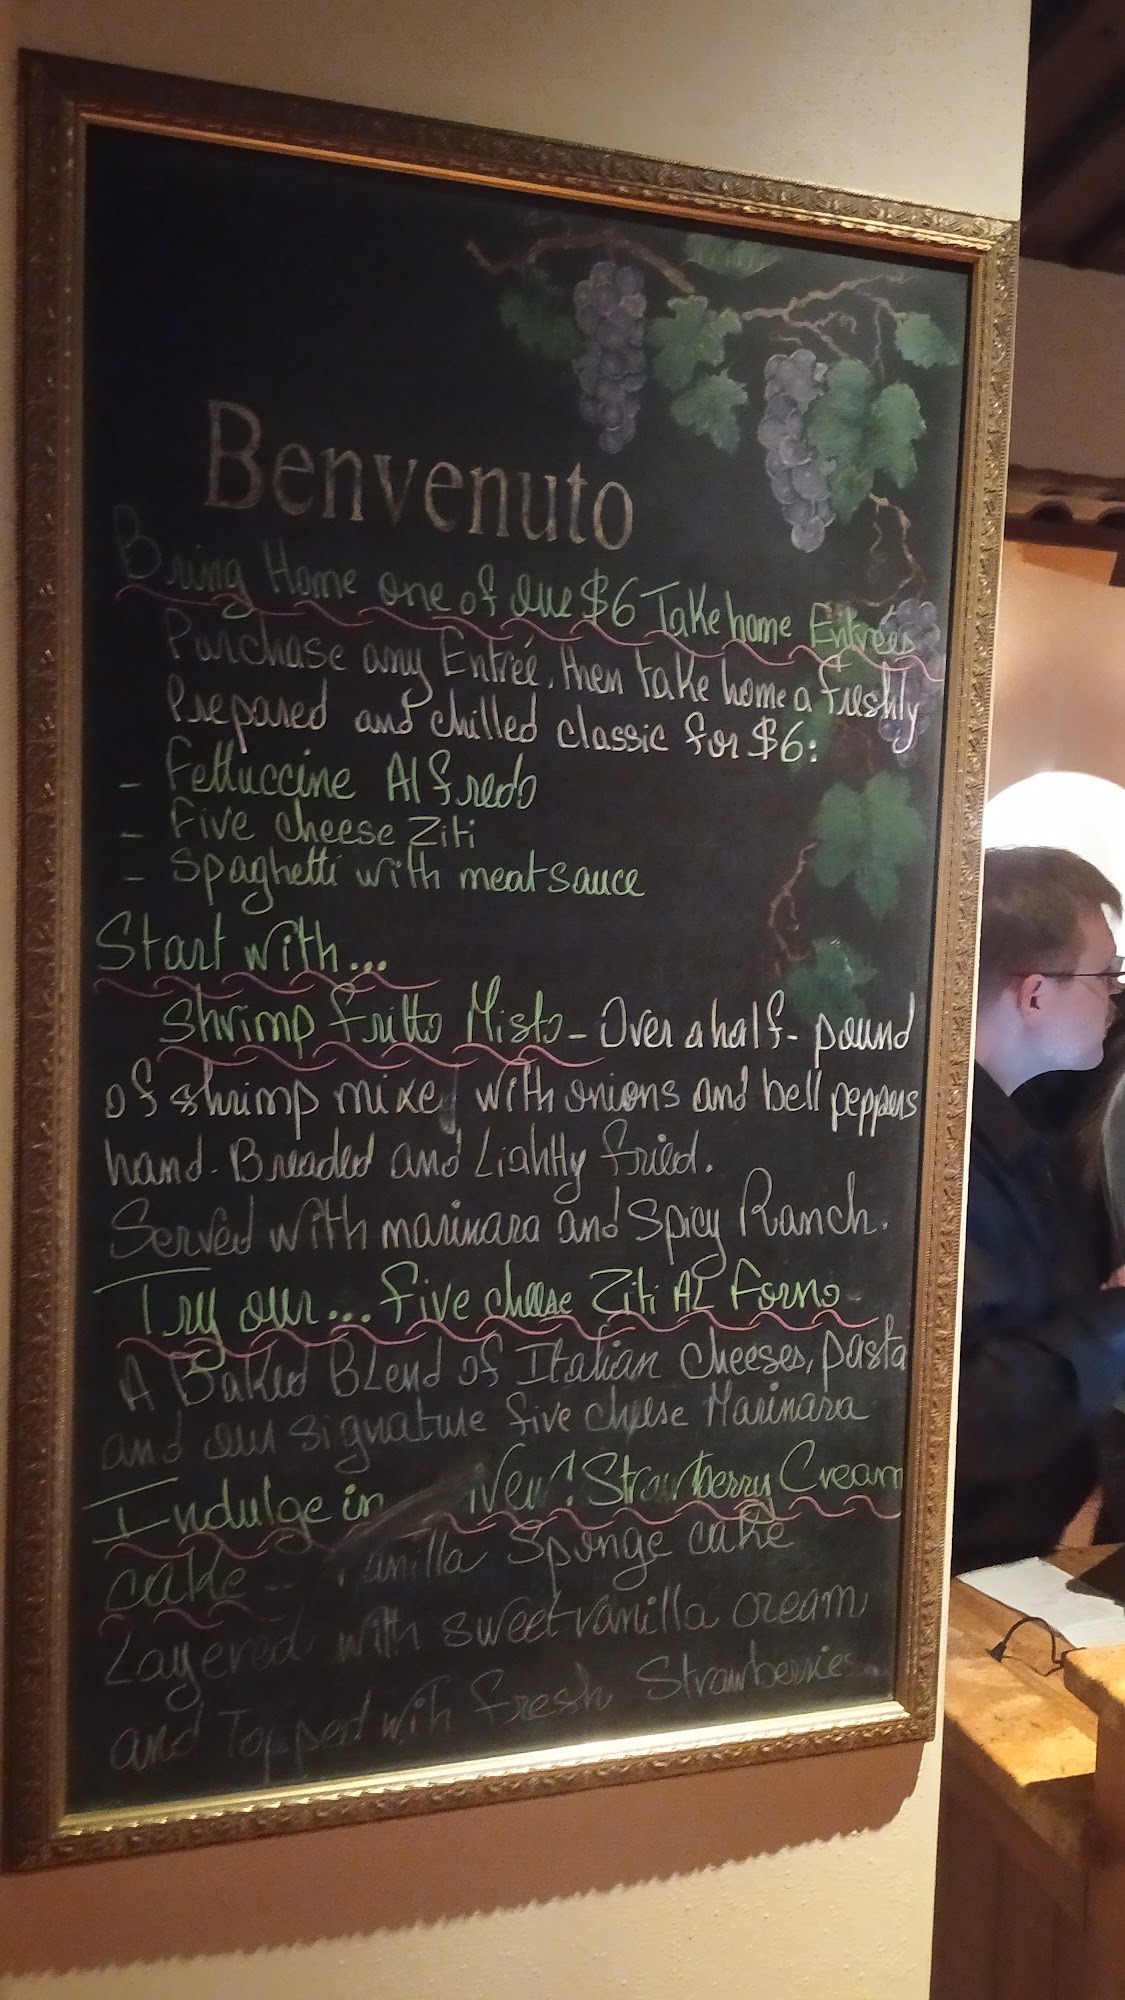 Benvenuto
Bring Home one of our $6 Take home Entrées
Purchase any Entrée, then take home a freshly
Prepared and chilled classic for $6:
- Fettuccine Alfredo
- Five cheese Ziti
- Spaghetti with meat sauce
Start with...
Shrimp Fritto Misto - Over a half - pound
of shrimp mixed with onions and bell peppers
hand-Breaded and Lightly fried.
Served with marinara and Spicy Ranch.
Try our... five cheese Ziti AL Forno -
A Baked Blend of Italian cheeses, pasta
and our signature five cheese Marinara
Indulge in New! Strawberry Cream
cake - Vanilla Sponge cake
Layered with sweet vanilla cream
and Topped with fresh Strawberries.